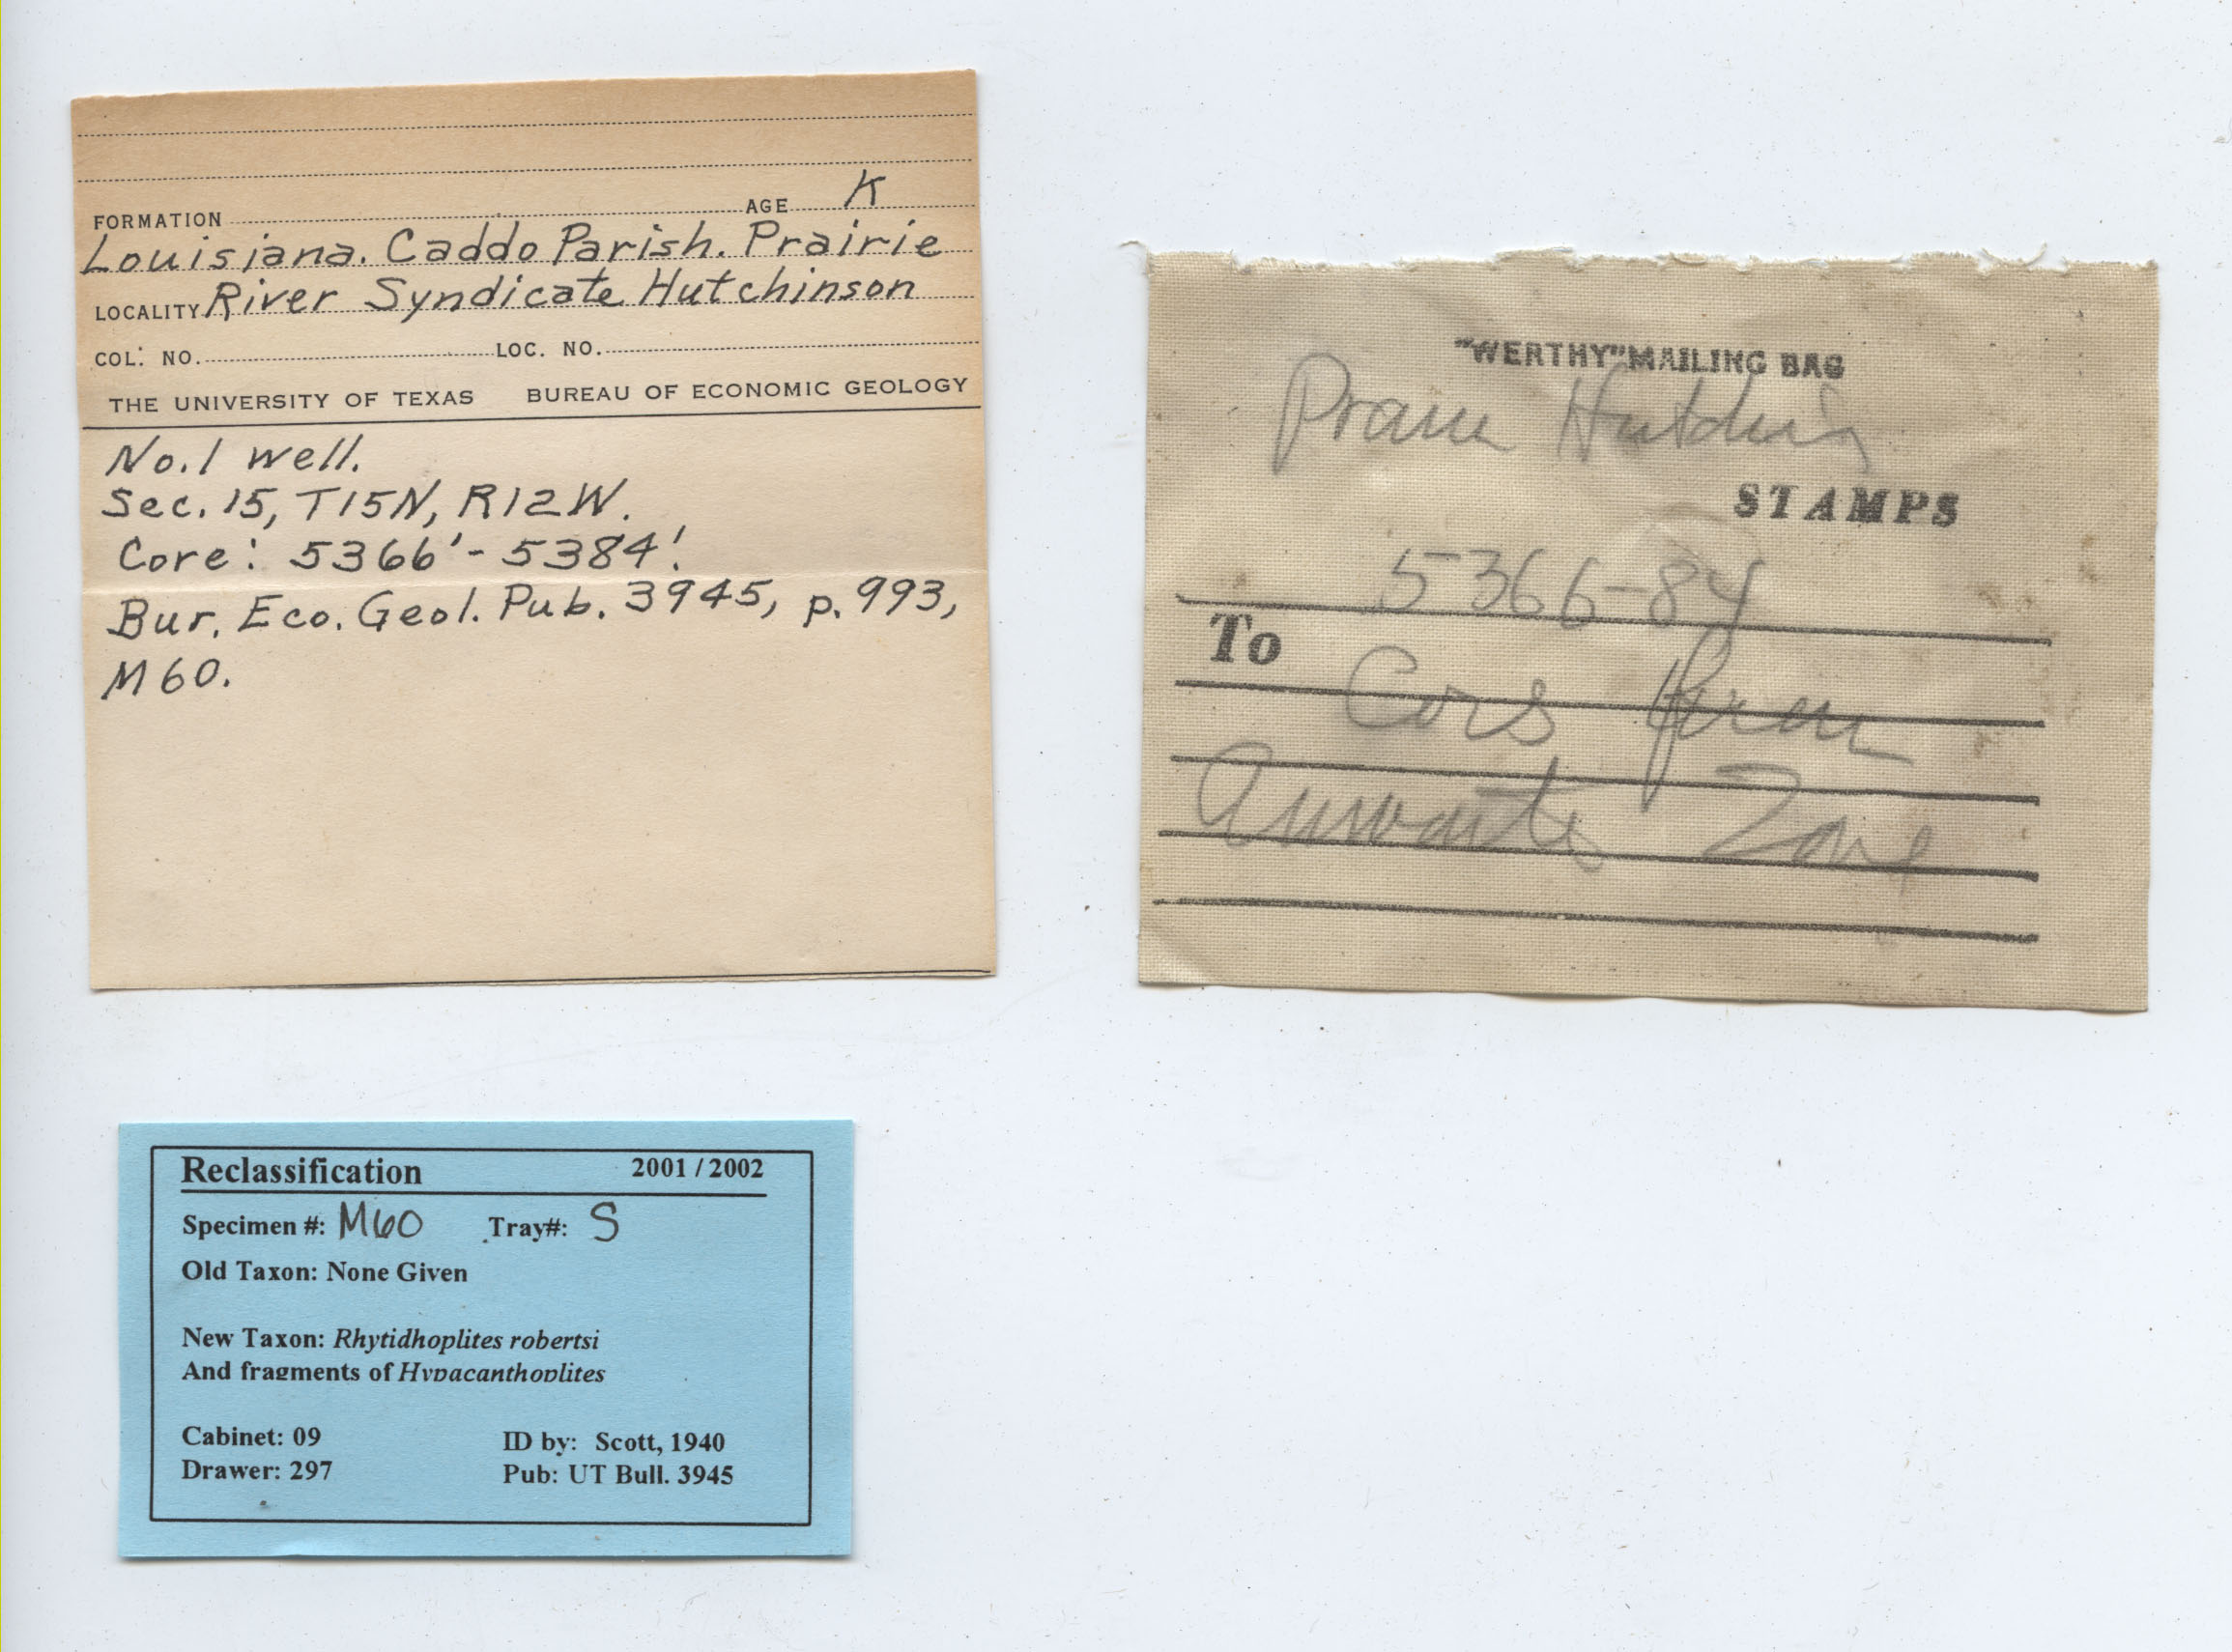 FORMATION AGE K
Louisiana. Caddo Parish. Prairie
LOCALITY River Syndicate Hutchinson
COL. NO. LOC. NO.
THE UNIVERSITY OF TEXAS BUREAU OF ECONOMIC GEOLOGY
No. 1 well.
Sec. 15, T15N, R12W.
Core: 5366'-5384'.
Bur. Eco. Geol. Pub. 3945, p. 993,
M60.
"WERTHY" MAILING BAG
STAMPS
5366-84
To
Zone
Reclassification 2001 / 2002
Specimen #: M60 Tray#: S
Old Taxon: None Given
New Taxon: Rhytidhoplites robertsi
And fragments of Hypacanthoplites
Cabinet: 09 ID by: Scott, 1940
Drawer: 297 Pub: UT Bull. 3945